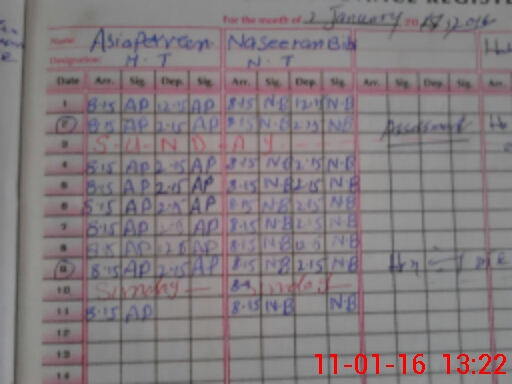 For the month of January 2016
Name: Asia Perveen Naseeran Bibi
Designation: H.T N.T
Date Arr. Sig. Dep. Sig. Arr. Sig. Dep. Sig. Arr. Sig. Dep. Sig. Arr.
1 8.15 AP 12.15 AP 8.15 N.B 12.15 N.B
2 8.15 AP 2.15 AP 8.15 N.B 2.15 N.B
3 S-U-N-D-A-Y
4 8.15 AP 2.15 AP 8.15 N.B 2.15 N.B
5 8.15 AP 2.15 AP 8.15 N.B 2.15 N.B
6 8.15 AP 2.15 AP 8.15 N.B 2.15 N.B
7 8.15 AP 2.15 AP 8.15 N.B 2.15 N.B
8 8.15 AP AP 8.15 N.B N.B
9 8.15 AP 2.15 AP 8.15 N.B 2.15 N.B
10 Sunday Sunday
11 8.15 AP 8.15 N.B N.B
12
13
14
11-01-16 13:22